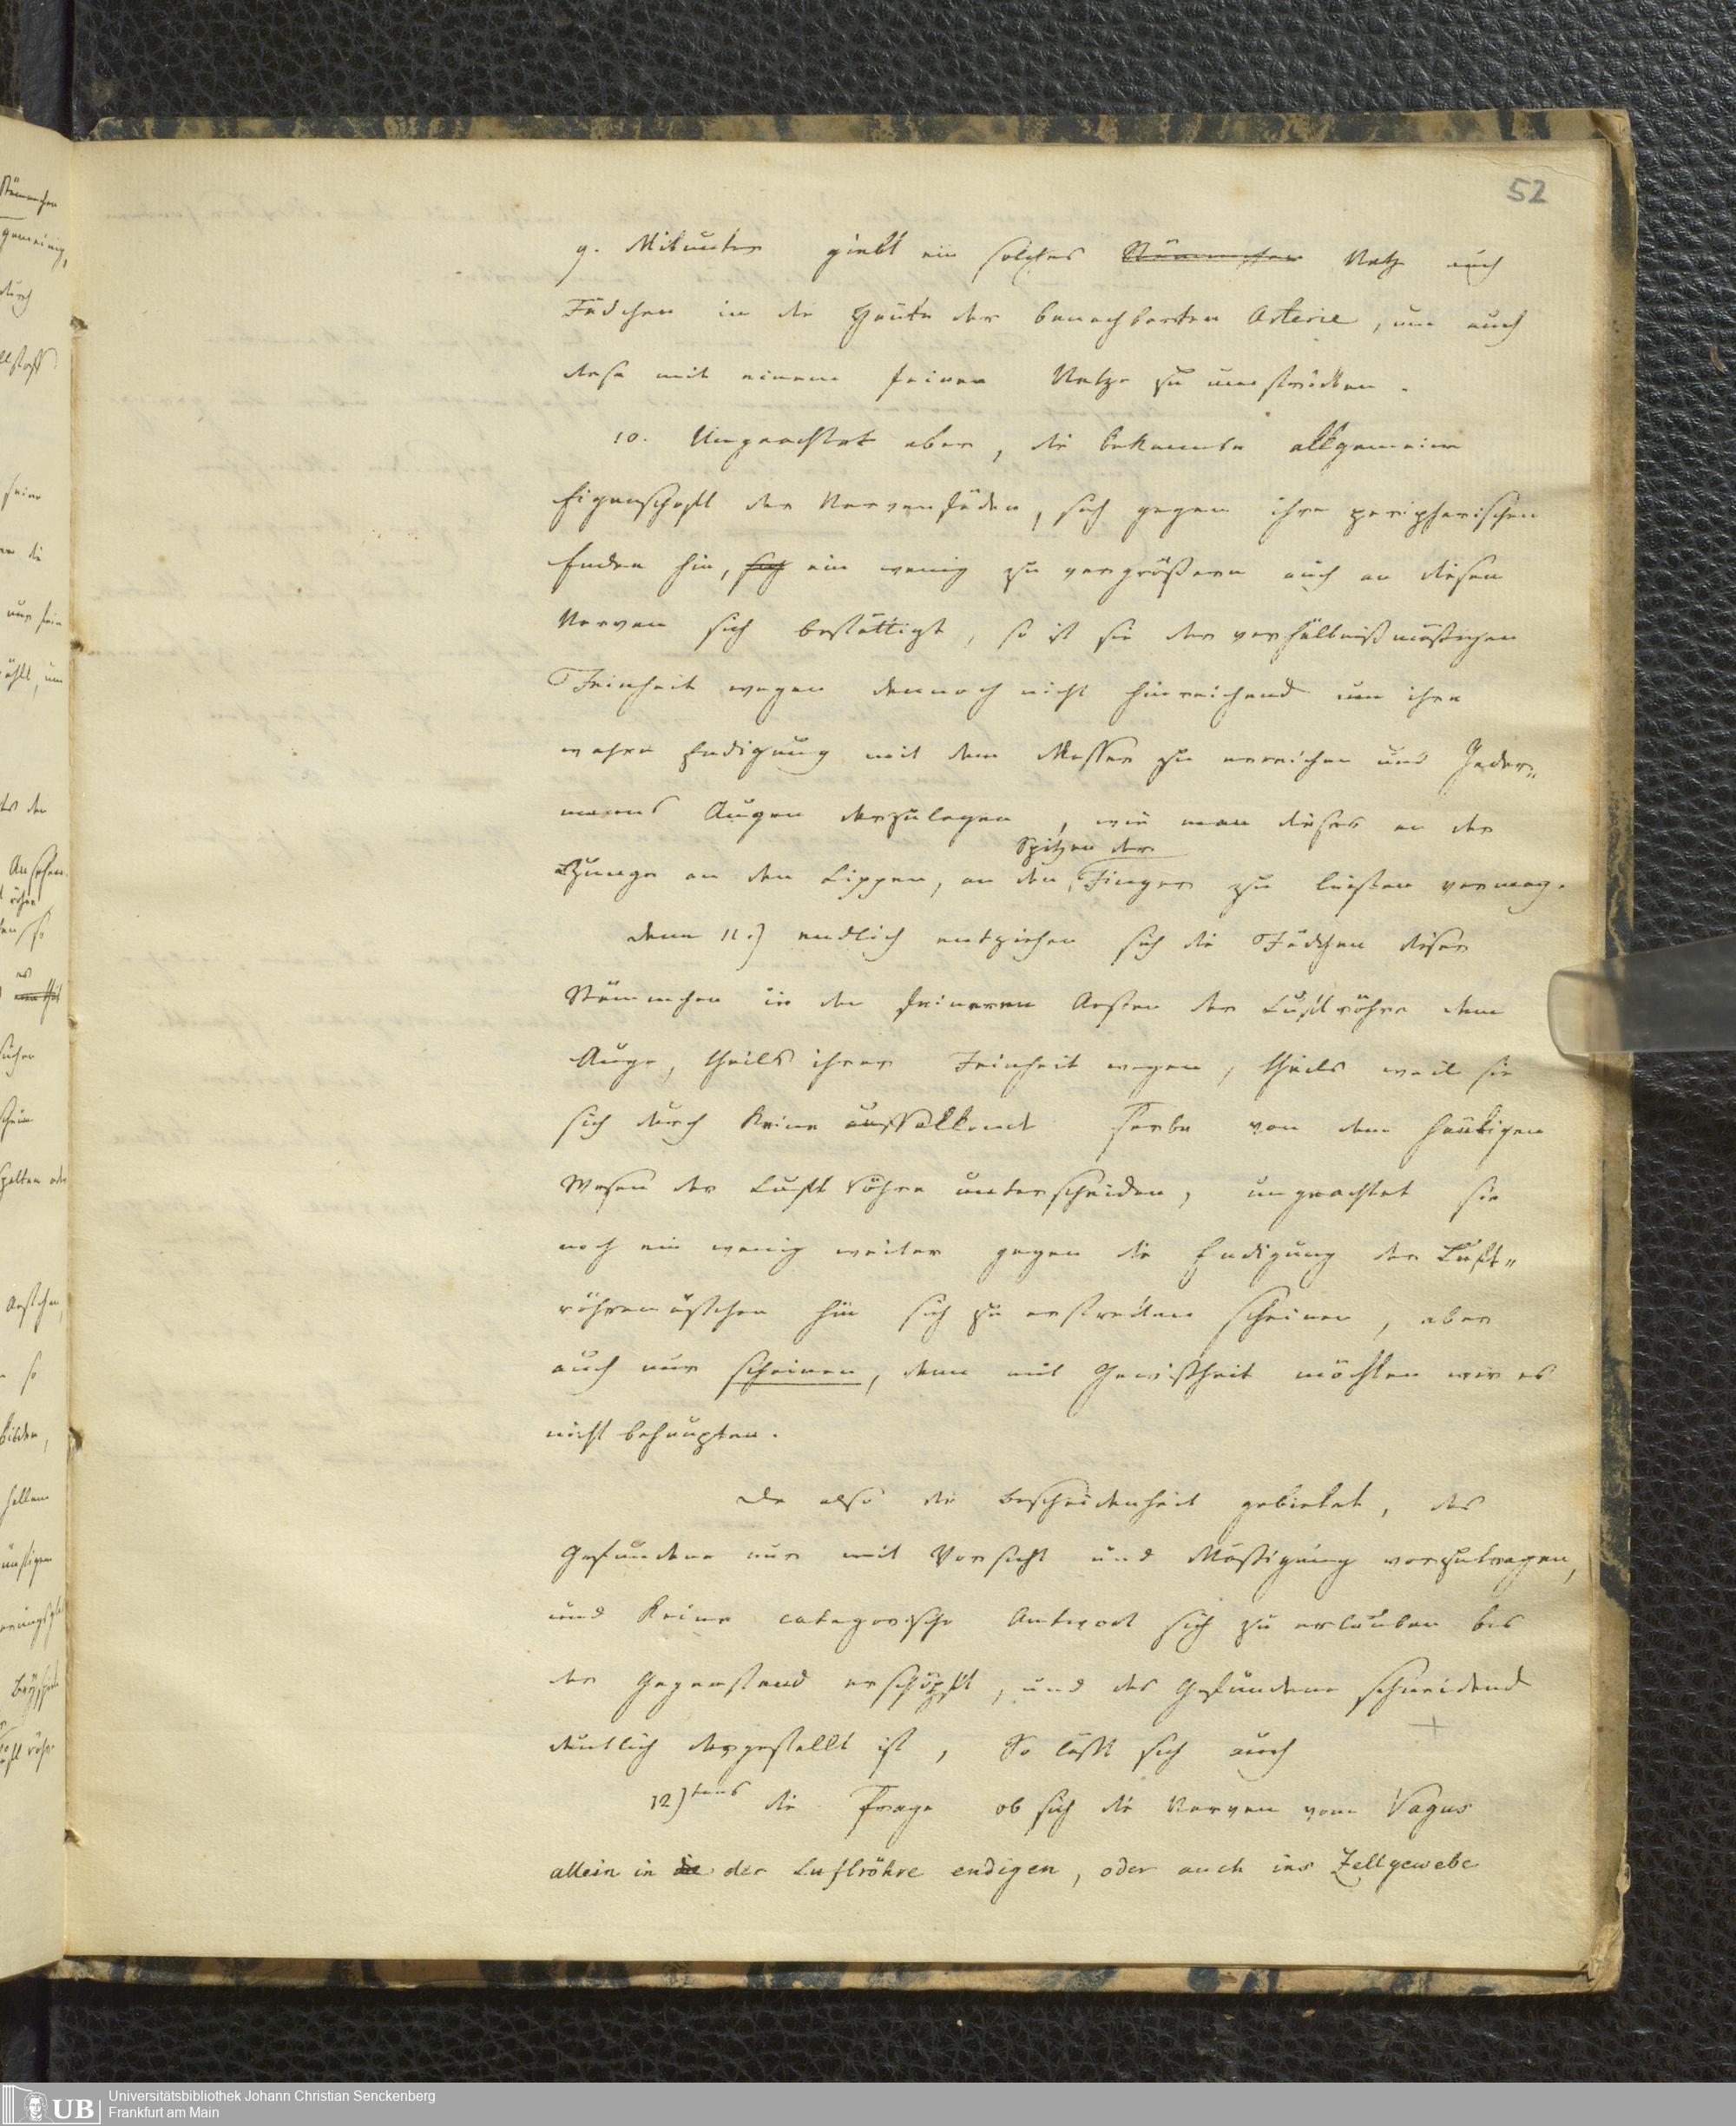 52
9. Mitunter giebt ein solches Stämmchen Netz auch
Fädchen in die Häute der benachbarten Arterie, um auch
diese mit einem feinen Netze zu umstricken.
10. Ungeachtet aber, die bekannte allgemeine
Eigenschaft der Nervenfäden, sich gegen ihre peripherischen
Enden hin, sich ein wenig zu vergrößern auch an diesen
Nerven sich bestättigt, so ist sie der verhältnißmäßigen
Feinheit wegen dennoch nicht hinreichend um ihre
wahre Endigung mit dem Messer zu erreichen und Jeder„
manns Augen darzulegen, wie man dieses an der
Spitzen der
Zunge an den Lippen, an den Finger zu leisten vermag.
Denn 11.) endlich entziehen sich die Fädchen dieser
Stämmchen in den feineren Aesten der Luftröhre dem
Auge, theils ihrer Feinheit wegen, theils weil sie
sich durch keine auffallende Farbe von dem häutigen
Wesen der Luftröhre unterscheiden, ungeachtet sie
noch ein wenig weiter gegen die Endigung der Luft„
röhrenästchen hin sich zu erstrecken scheinen, aber
auch nur scheinen, denn mit Gewißheit möchten wir es
nicht behaupten.
Da also die Bescheidenheit gebietet, das
Gefundene nur mit Vorsicht und Mäßigung vorzutragen,
und keine categorische Antwort sich zu erlauben bis
der Gegenstand erschöpft, und das Gefundene schneidend
deutlich dargestellt ist, So läßt sich auch
12)tens die Frage ob sich die Nerven vom Vagus
allein in die der Luftröhre endigen, oder auch ins Zellgewebe
UB Universitätsbibliothek Johann Christian Senckenberg
Frankfurt am Main